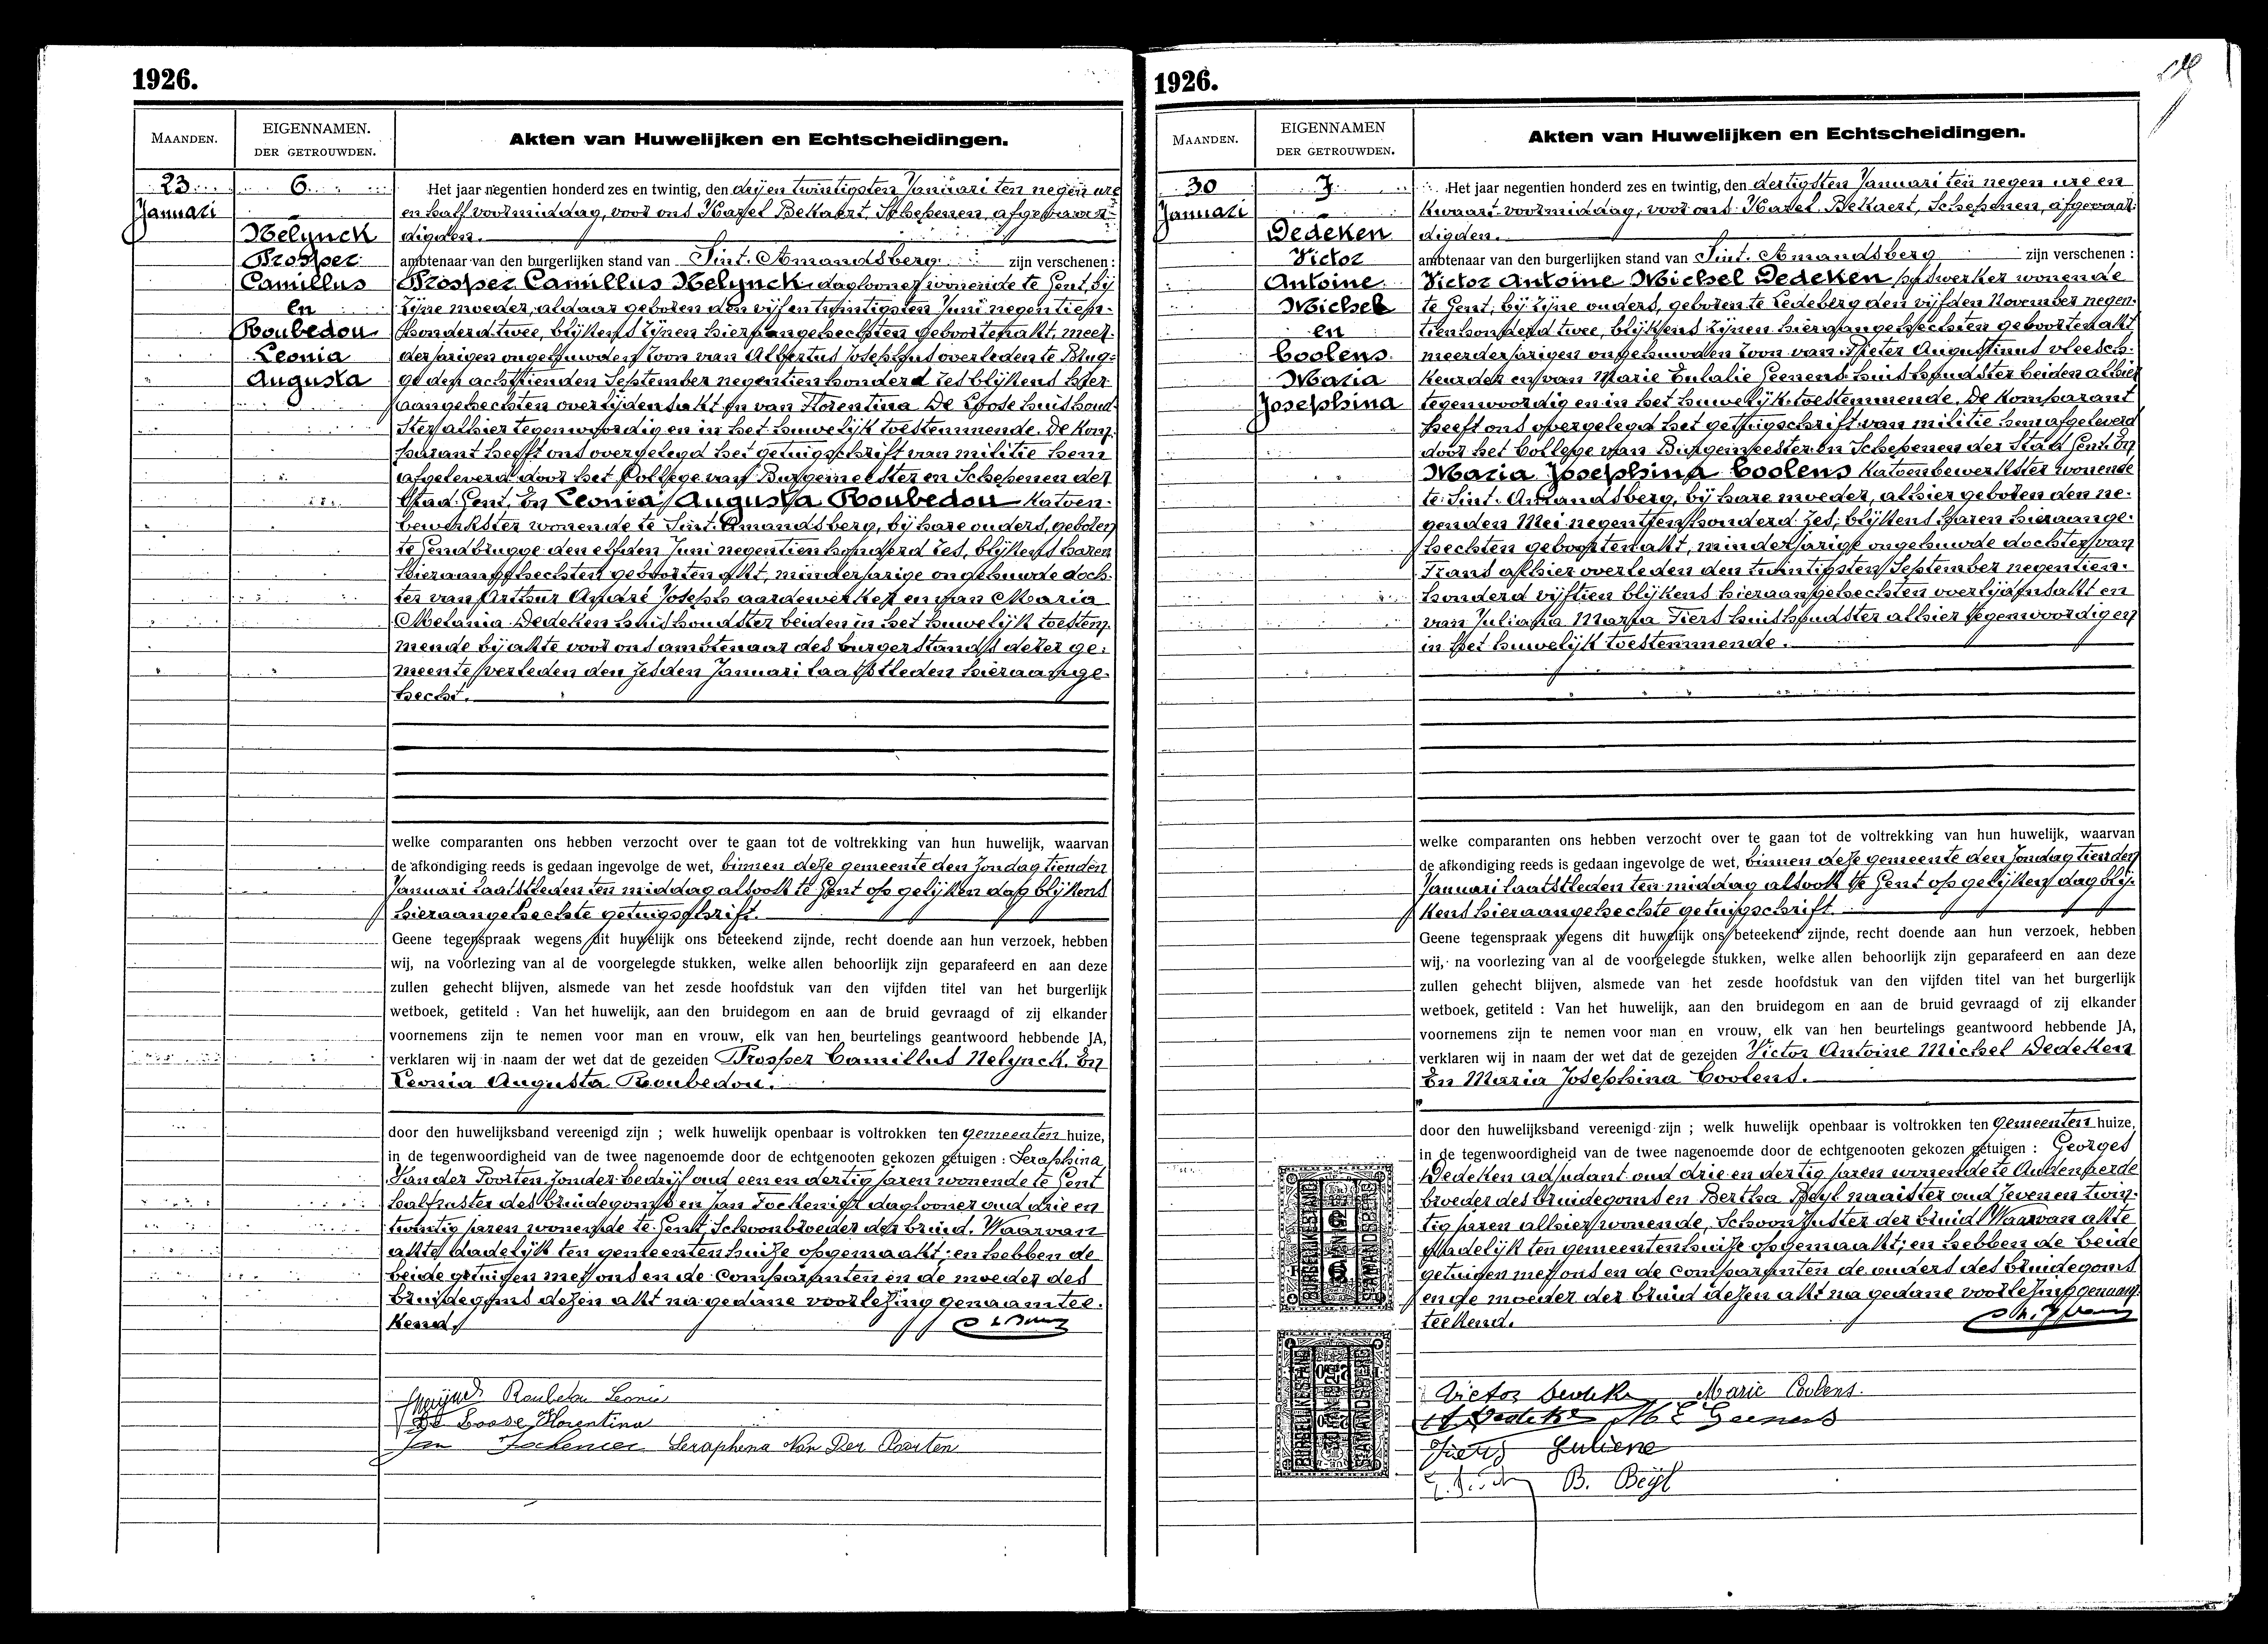 1926.
MAANDEN.
EIGENNAMEN.
DER GETROUWDEN.
Akten van Huwelijken en Echtscheidingen.
23
Januari
6
Nelynck
Prosper
Camillus
en
Roubedou
Leonia
Augusta
Het jaar negentien honderd zes en twintig, den drij en twintigsten Januari ten negen ure
en half voormiddag, voor ons Karel Bekaert, Schepenen, afgevaar-
digden.
ambtenaar van den burgerlijken stand van Sint. Amandsberg zijn verschenen :
Prosper Camillus Nelynck, daglooner wonende te Gent, bij
zijne moeder, aldaar geboren den vijf en twintigsten Juni negentien-
honderd twee, blijkens zijnen hieraangehechten geboortenakt, meer-
derjarigen ongehuwden zoon van Albertus Josephus overleden te Brug-
ge den achttienden September negentien honderd zes blijkens hier-
aangehechten overlijdensakt en van Florentina De Loose huishoud-
ster alhier tegenwoordig en in het huwelijk toestemmende. De kom-
parant heeft ons overgelegd het getuigschrift van militie hem
afgeleverd door het College van Burgemeester en Schepenen der
Stad Gent. En Leonia Augusta Roubedou Katoen-
bewerkster wonende te Sint. Amandsberg, bij hare ouders, geboren
te Gendbrugge den elfden Juni negentien honderd zes, blijkens haren
hieraangehechten geboortenakt, minderjarige ongehuwde doch-
ter van Arthur André Joseph aardewerker en van Maria
Melania Dedeken huishoudster beiden in het huwelijk toestem-
mende bij akte voor ons ambtenaar des burgerstands dezer ge-
meente verleden den zesden Januari laatstleden hieraange-
hecht.
welke comparanten ons hebben verzocht over te gaan tot de voltrekking van hun huwelijk, waarvan
de afkondiging reeds is gedaan ingevolge de wet, binnen deze gemeente den Zondag tienden
Januari laatstleden ten middag alsook te Gent op gelijken dag blijkens
hieraangehechte getuigschrift.
Geene tegenspraak wegens dit huwelijk ons beteekend zijnde, recht doende aan hun verzoek, hebben
wij, na voorlezing van al de voorgelegde stukken, welke allen behoorlijk zijn geparafeerd en aan deze
zullen gehecht blijven, alsmede van het zesde hoofdstuk van den vijfden titel van het burgerlijk
wetboek, getiteld : Van het huwelijk, aan den bruidegom en aan de bruid gevraagd of zij elkander
voornemens zijn te nemen voor man en vrouw, elk van hen beurtelings geantwoord hebbende JA,
verklaren wij in naam der wet dat de gezeiden Prosper Camillus Nelynck. En
Leonia Augusta Roubedou.
door den huwelijksband vereenigd zijn ; welk huwelijk openbaar is voltrokken ten gemeenten huize,
in de tegenwoordigheid van de twee nagenoemde door de echtgenooten gekozen getuigen : Seraphina
Van der Poorten zonder bedrijf oud een en dertig jaren wonende te Gent
halfzuster des bruidegoms en Jan Tockenier daglooner oud drie en
twintig jaren wonende te Gent Schoonbroeder der bruid. Waarvan
akte dadelijk ten gemeentenhuize opgemaakt; en hebben de
beide getuigen met ons en de comparanten en de moeder des
bruidegoms dezen akt na gedane voorlezing genaamtee-
kend.
Roubedou Leonie
De Loose Florentina
Jan Tockenier Seraphena Van Der Poorten
1926.
MAANDEN.
EIGENNAMEN
DER GETROUWDEN.
Akten van Huwelijken en Echtscheidingen.
30
Januari
7
Dedeken
Victor
Antoine
Michel
en
Coolens
Maria
Josephina
Het jaar negentien honderd zes en twintig, den dertigsten Januari ten negen ure en
kwaart voormiddag, voor ons Karel Bekaert, Schepenen, afgevaar-
digden.
ambtenaar van den burgerlijken stand van Sint. Amandsberg zijn verschenen :
Victor Antoine Michel Dedeken, wonende
te Gent, bij zijne ouders, geboren te Ledeberg den vijfden November negen-
tienhonderd twee, blijkens zijnen hieraangehechten geboortenakt
meerderjarigen ongehuwden zoon van Pieter Augustinus vleesch-
keurder en van Marie Eulalie Geenens huishoudster beiden alhier
tegenwoordig en in het huwelijk toestemmende. De komparant
heeft ons overgelegd het getuigschrift van militie hem afgeleverd
door het College van Burgemeester en Schepenen der Stad Gent. En
Maria Josephina Coolens katoenbewerkster wonende
te Sint. Amandsberg, bij hare moeder, alhier geboren den ne-
genden Mei negentienhonderd zes, blijkens haren hieraange-
hechten geboortenakt, minderjarige ongehuwde dochter van
Frans alhier overleden den twintigsten September negentien-
honderd vijftien blijkens hieraangehechten overlijdensakt en
van Juliana Maria Fiers huishoudster alhier tegenwoordig en
in het huwelijk toestemmende.
welke comparanten ons hebben verzocht over te gaan tot de voltrekking van hun huwelijk, waarvan
de afkondiging reeds is gedaan ingevolge de wet, binnen deze gemeente den Zondag tienden
Januari laatstleden ten middag alsook te Gent op gelijken dag blij-
kens hieraangehechte getuigschrift.
Geene tegenspraak wegens dit huwelijk ons beteekend zijnde, recht doende aan hun verzoek, hebben
wij, na voorlezing van al de voorgelegde stukken, welke allen behoorlijk zijn geparafeerd en aan deze
zullen gehecht blijven, alsmede van het zesde hoofdstuk van den vijfden titel van het burgerlijk
wetboek, getiteld : Van het huwelijk, aan den bruidegom en aan de bruid gevraagd of zij elkander
voornemens zijn te nemen voor man en vrouw, elk van hen beurtelings geantwoord hebbende JA,
verklaren wij in naam der wet dat de gezeiden Victor Antoine Michel Dedeken
En Maria Josephina Coolens.
door den huwelijksband vereenigd zijn ; welk huwelijk openbaar is voltrokken ten gemeenten huize,
in de tegenwoordigheid van de twee nagenoemde door de echtgenooten gekozen getuigen : Georges
Dedeken adjudant oud drie en dertig jaren wonende te Audenaerde
broeder des bruidegoms en Bertha Beyl naaister oud zeven en twin-
tig jaren alhier wonende, Schoonzuster der bruid. Waarvan akte
dadelijk ten gemeentenhuize opgemaakt; en hebben de beide
getuigen met ons en de comparanten de ouders des bruidegoms
en de moeder der bruid dezen akt na gedane voorlezing genaam-
teekend.
Victor Dedeken Marie Coolens.
M E Geenens
Fiers Juliene
B. Beyl